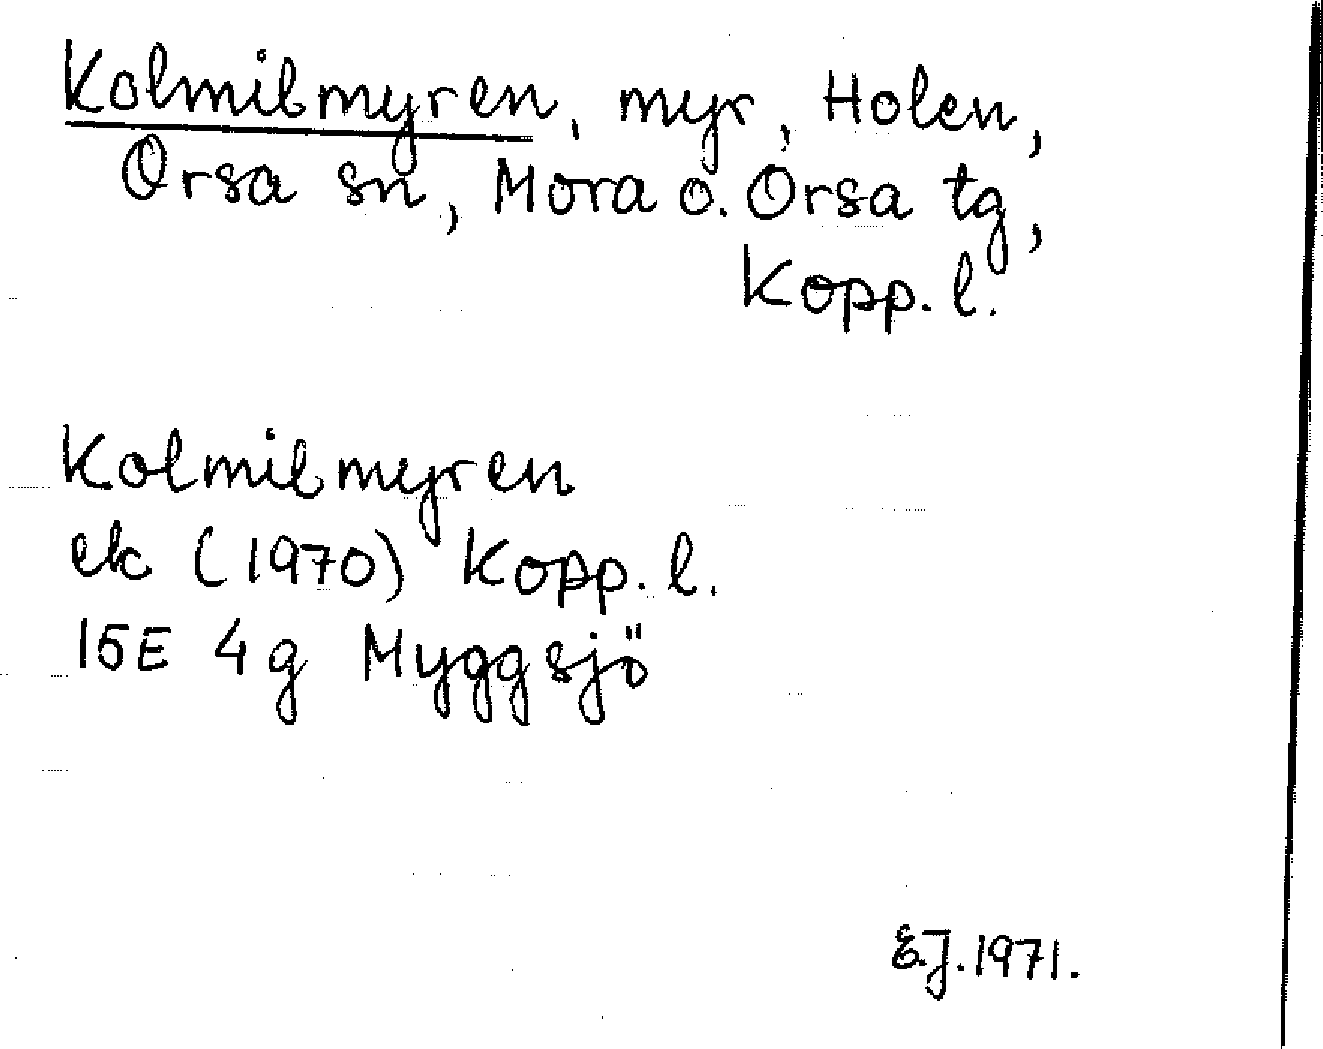 Kolmilmyren, myr, Holen,
Orsa sn, Mora o. Orsa tg,
Kopp. l.
Kolmilmyren
ek (1970) Kopp. l.
15E 4g Myggsjö
E.J. 1971.